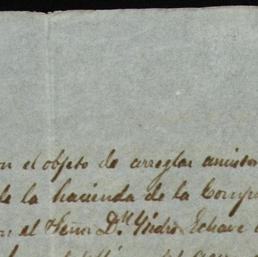 on el objeto de arreglar amistos
de la hacienda de la Comp
on el Señor D.ⁿ Ysidro Echave